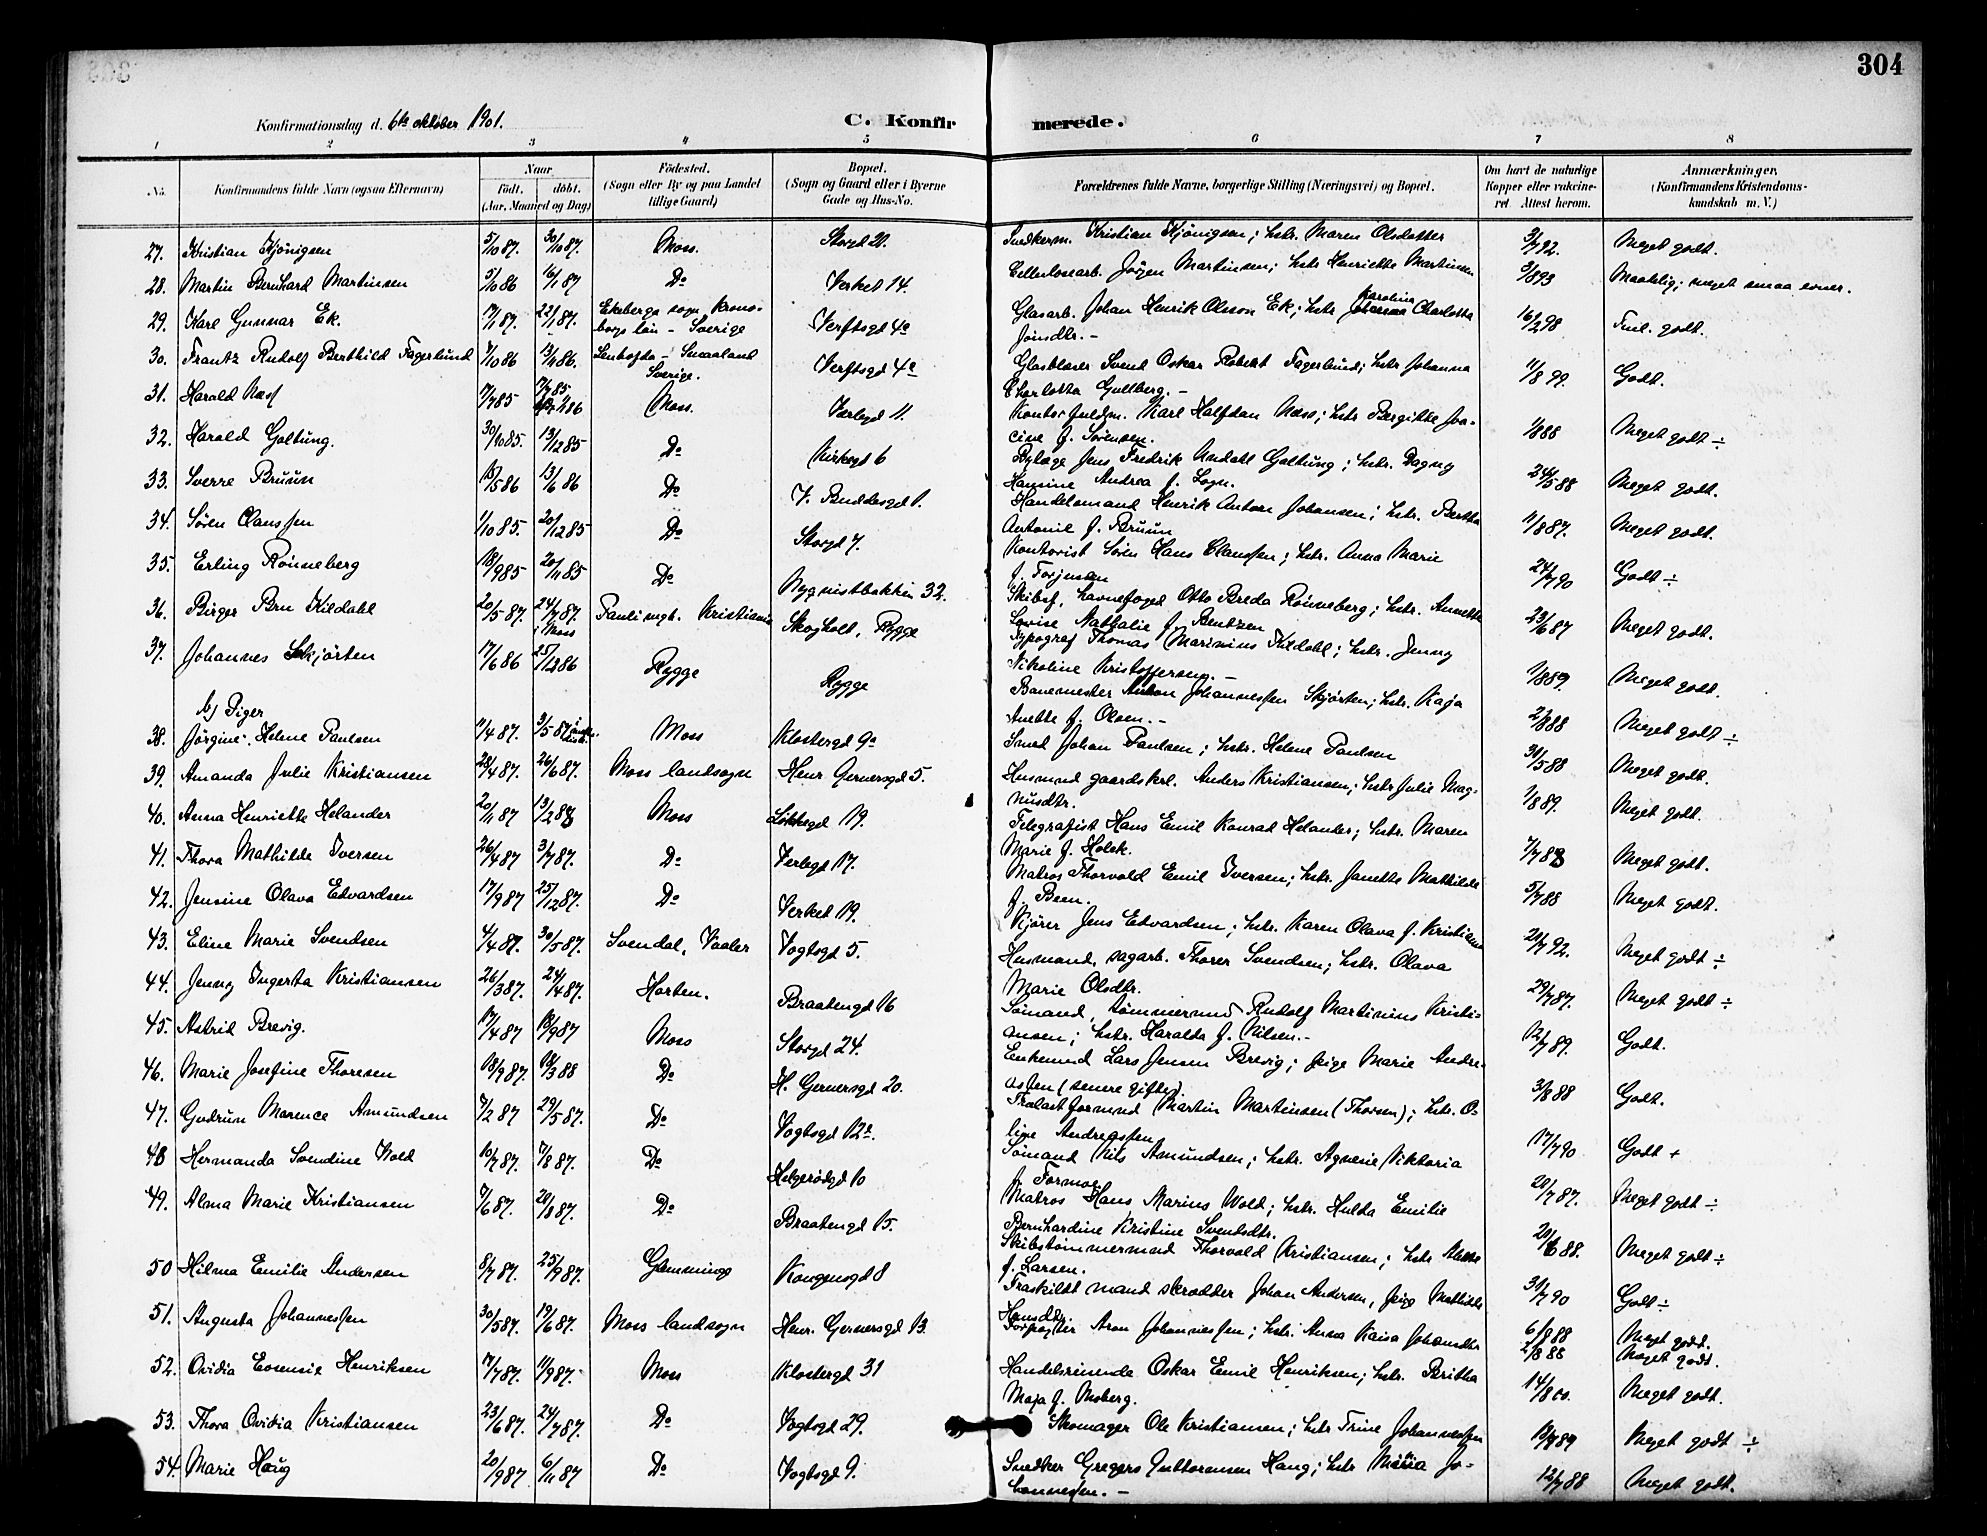 304
Konfirmationsdag d. 6te oktober 1901.
C. Konfirmerede.
1 2 3 4 5 6 7 8
No. Konfirmandens fulde Navn (ogsaa Efternavn) Naar født. døbt. (Aar, Maaned og Dag) Fødested. (Sogn eller By og paa Landet tillige Gaard) Bopæl. (Sogn og Gaard eller i Byerne Gade og Hus-No. Forældrenes fulde Navne, borgerlige Stilling (Næringsvei) og Bopæl. Om havt de naturlige Kopper eller vaccineret Attest herom. Anmærkninger, (Konfirmandens Kristendomskundskab m. V.)
27. Kristian Kjönigsen 5/10 87. 30/10 87. Moss. Storgd 20. Snedkerm. Kristian Kjönigsen; hstr. Maren Olsdatter 3/7 92. Meget godt.
28. Martin Bernhard Martinsen 5/10 86 16/1 87 Do Verket 14. Cellulosearb. Jörgen Martinsen; hstr Henriette Martinsen 3/8 93 Maadelig; meget smaa evner.
29. Karl Gunnar Ek. 17/1 87. 22/1 87. Ekeberga sogn Kronoborgs län - Sverige Verftsgd 4a Glasarb. Johan Henrik Olsson Ek; hstr Karolina Charlotta
Jonsdtr. - 16/2 98 Tml. godt.
30. Frantz Rudolf Berthild Fagerlund 7/10 86 13/11 86. Lenhofda - Smaaland Sverige. Verftsgd 4a Glasblæser Svend Oskar Robert Fagerlund; hstr Johanna
Charlotta Gullberg. - 11/8 99. Godt.
31. Harald Næss 7/7 85 17/7 85 Moss. Verlegd 11. Kontorfuldm. Karl Halfdan Næss; hstr Bergitte Joacine f. Sörensen. 1/8 88 Meget godt ÷
32. Harald Galtung. 30/10 85. 13/12 85 Do Kirkegd 6 Bylæge Jens Fredrik Undall Galtung; hstr. Dagny
Hansine Andrea f. Sogn. 24/5 88 Meget godt.
33. Sverre Bruun 18/5 86 13/6 86 Do V. Buddesgd 1. Handelsmand Henrik Anton Johansen; hstr. Bertha
Antonie f. Bruun 11/8 87. Meget godt.
34. Sören Claussen 1/10 85. 20/12 85 Do Storgd 7. Kontorist Sören Hans Claussen; hstr. Anna Marie
f. Torjusen 24/7 90 Godt ÷
35. Erling Rönneberg 18/9 85 20/11 85 Do Nyquistbakken 32. Skibsf., havnefoged Otto Breda Rönneberg; hstr. Annette
Lovise Nathalie f. Bentzen 23/6 87 Meget godt.
36. Birger Bru Kildahl 20/5 87. 24/7 87. i Moss Pauli mgh. Kristiania Skogholt, Rygge Typograf Thomas Marinius Kildahl; hstr. Jenny
Nikoline Kristoffersen. - 1/8 89. Meget godt.
37. Johannes Skjörten 17/6 86 25/12 86 Rygge Rygge Banemester Anton Johannessen Skjörten; hstr. Kaja
Anette f. Olsen. - 2/8 88 Meget godt ÷
b) Piger
38. Jörgine Helene Paulsen 11/4 87. 3/5 87 Moss Klostergd 9a Smed Johan Paulsen; hstr. Helene Paulsen 31/5 88 Meget godt.
39. Amanda Julie Kristiansen 28/4 87. 26/6 87. Moss landsogn Henr. Gernersgd 5. Husmand gaardskrl. Anders Kristiansen; hstr Julie Magnusdtr. 1/8 89. Meget godt.
40. Anna Henriette Helander 20/11 87 13/2 88 Moss Løkkegd 19. Telegrafist Hans Emil Konrad Helander; hstr. Maren
Marie f. Holck. 7/7 88 Meget godt.
41. Thora Mathilde Iversen 26/4 87 3/7 87. Do Verlegd 17. Matros Thorvald Emil Iversen; hstr. Janette Mathilde
f. Been. 5/7 88 Meget godt.
42. Jensine Olava Edvardsen 17/9 87 25/12 87. Do Verket 19. Kjörer Jens Edvardsen; hstr. Karen Olava f. Kristians 21/7 92. Meget godt ÷
43. Eline Marie Svendsen 4/4 87. 30/5 87. Svendal, Vaaler Vogtsgd 5. Husmand, sagarb. Thorer Svendsen; hstr. Olava
Marie Olsdtr. 29/7 87. Meget godt ÷
44. Jenny Ingerta Kristiansen 26/3 87. 24/4 87. Horten. Braatengd 16 Sömand, tömmermnd Rudolf Martinius Kristiansen; hstr. Haralda f. Nilsen. - 12/7 89. Godt.
45. Astrid Brevig. 17/4 87 18/9 87 Moss Storgd 24. Enkemnd Lars Jensen Brevig; pige Marie Andreassen (senere gifte). 3/8 88 Godt.
46. Marie Josefine Thoresen 18/9 87. 18/3 88 Do H. Gernersgd 20. Trælastformnd Martin Martinsen (Thorsen); hstr. Oline Andreassen 17/7 90 Godt +
47. Gudrun Marence Amundsen 7/2 87 29/5 87. Do Vogtsgd 12a. Sömand Nils Amundsen; hstr. Agnesie Viktoria
f. Formoe 20/7 87. Meget godt ÷
48 Hermanda Svendine Wold 10/7 87. 7/8 87. Do Helgerödgd 10 Matros Hans Marius Wold; hstr. Hulda Emilie
Bernhardine Kristine Svendsdtr. 20/6 88. Meget godt ÷
49. Alma Marie Kristiansen 7/6 87. 20/8 87. Do Braatengd 15. Skibstömmermnd Thorvald Kristiansen; hstr
f. Larsen. 31/7 90 Godt ÷
50 Hilma Emilie Andersen 8/7 87. 25/9 87. Glemminge Kongensgd 8 Fraskildt mand skrædder Johan Andersen, pige Mathilde
Hansdtr 6/9 88 Meget godt.
51. Augusta Johannessen 30/5 87. 19/6 87. Moss landsogn Henr. Gernersgd 13. Forpagter Aron Johannessen; hstr. Anna Kaisa Johansdtr 2/8 88 Meget godt.
52. Ovidia Evensie Henriksen 17/7 87. 11/9 87. Moss Klostergd 31 Handelsreisende Oskar Emil Henriksen; hstr. Britha
Maja f. Moberg. 14/8 00. Meget godt.
53. Thora Ovidia Kristiansen 23/6 87. 24/7 87. Do Vogtsgd 29. Skomager Ole Kristiansen; hstr Trine Johannessen 13/8 89 Meget godt ÷
54. Marie Haug 20/9 87 6/11 87 Do Vogtsgd 9. Snedker Gregers Guttormsen Haug; hstr Maria Johannessen. - 12/7 88 Meget godt.